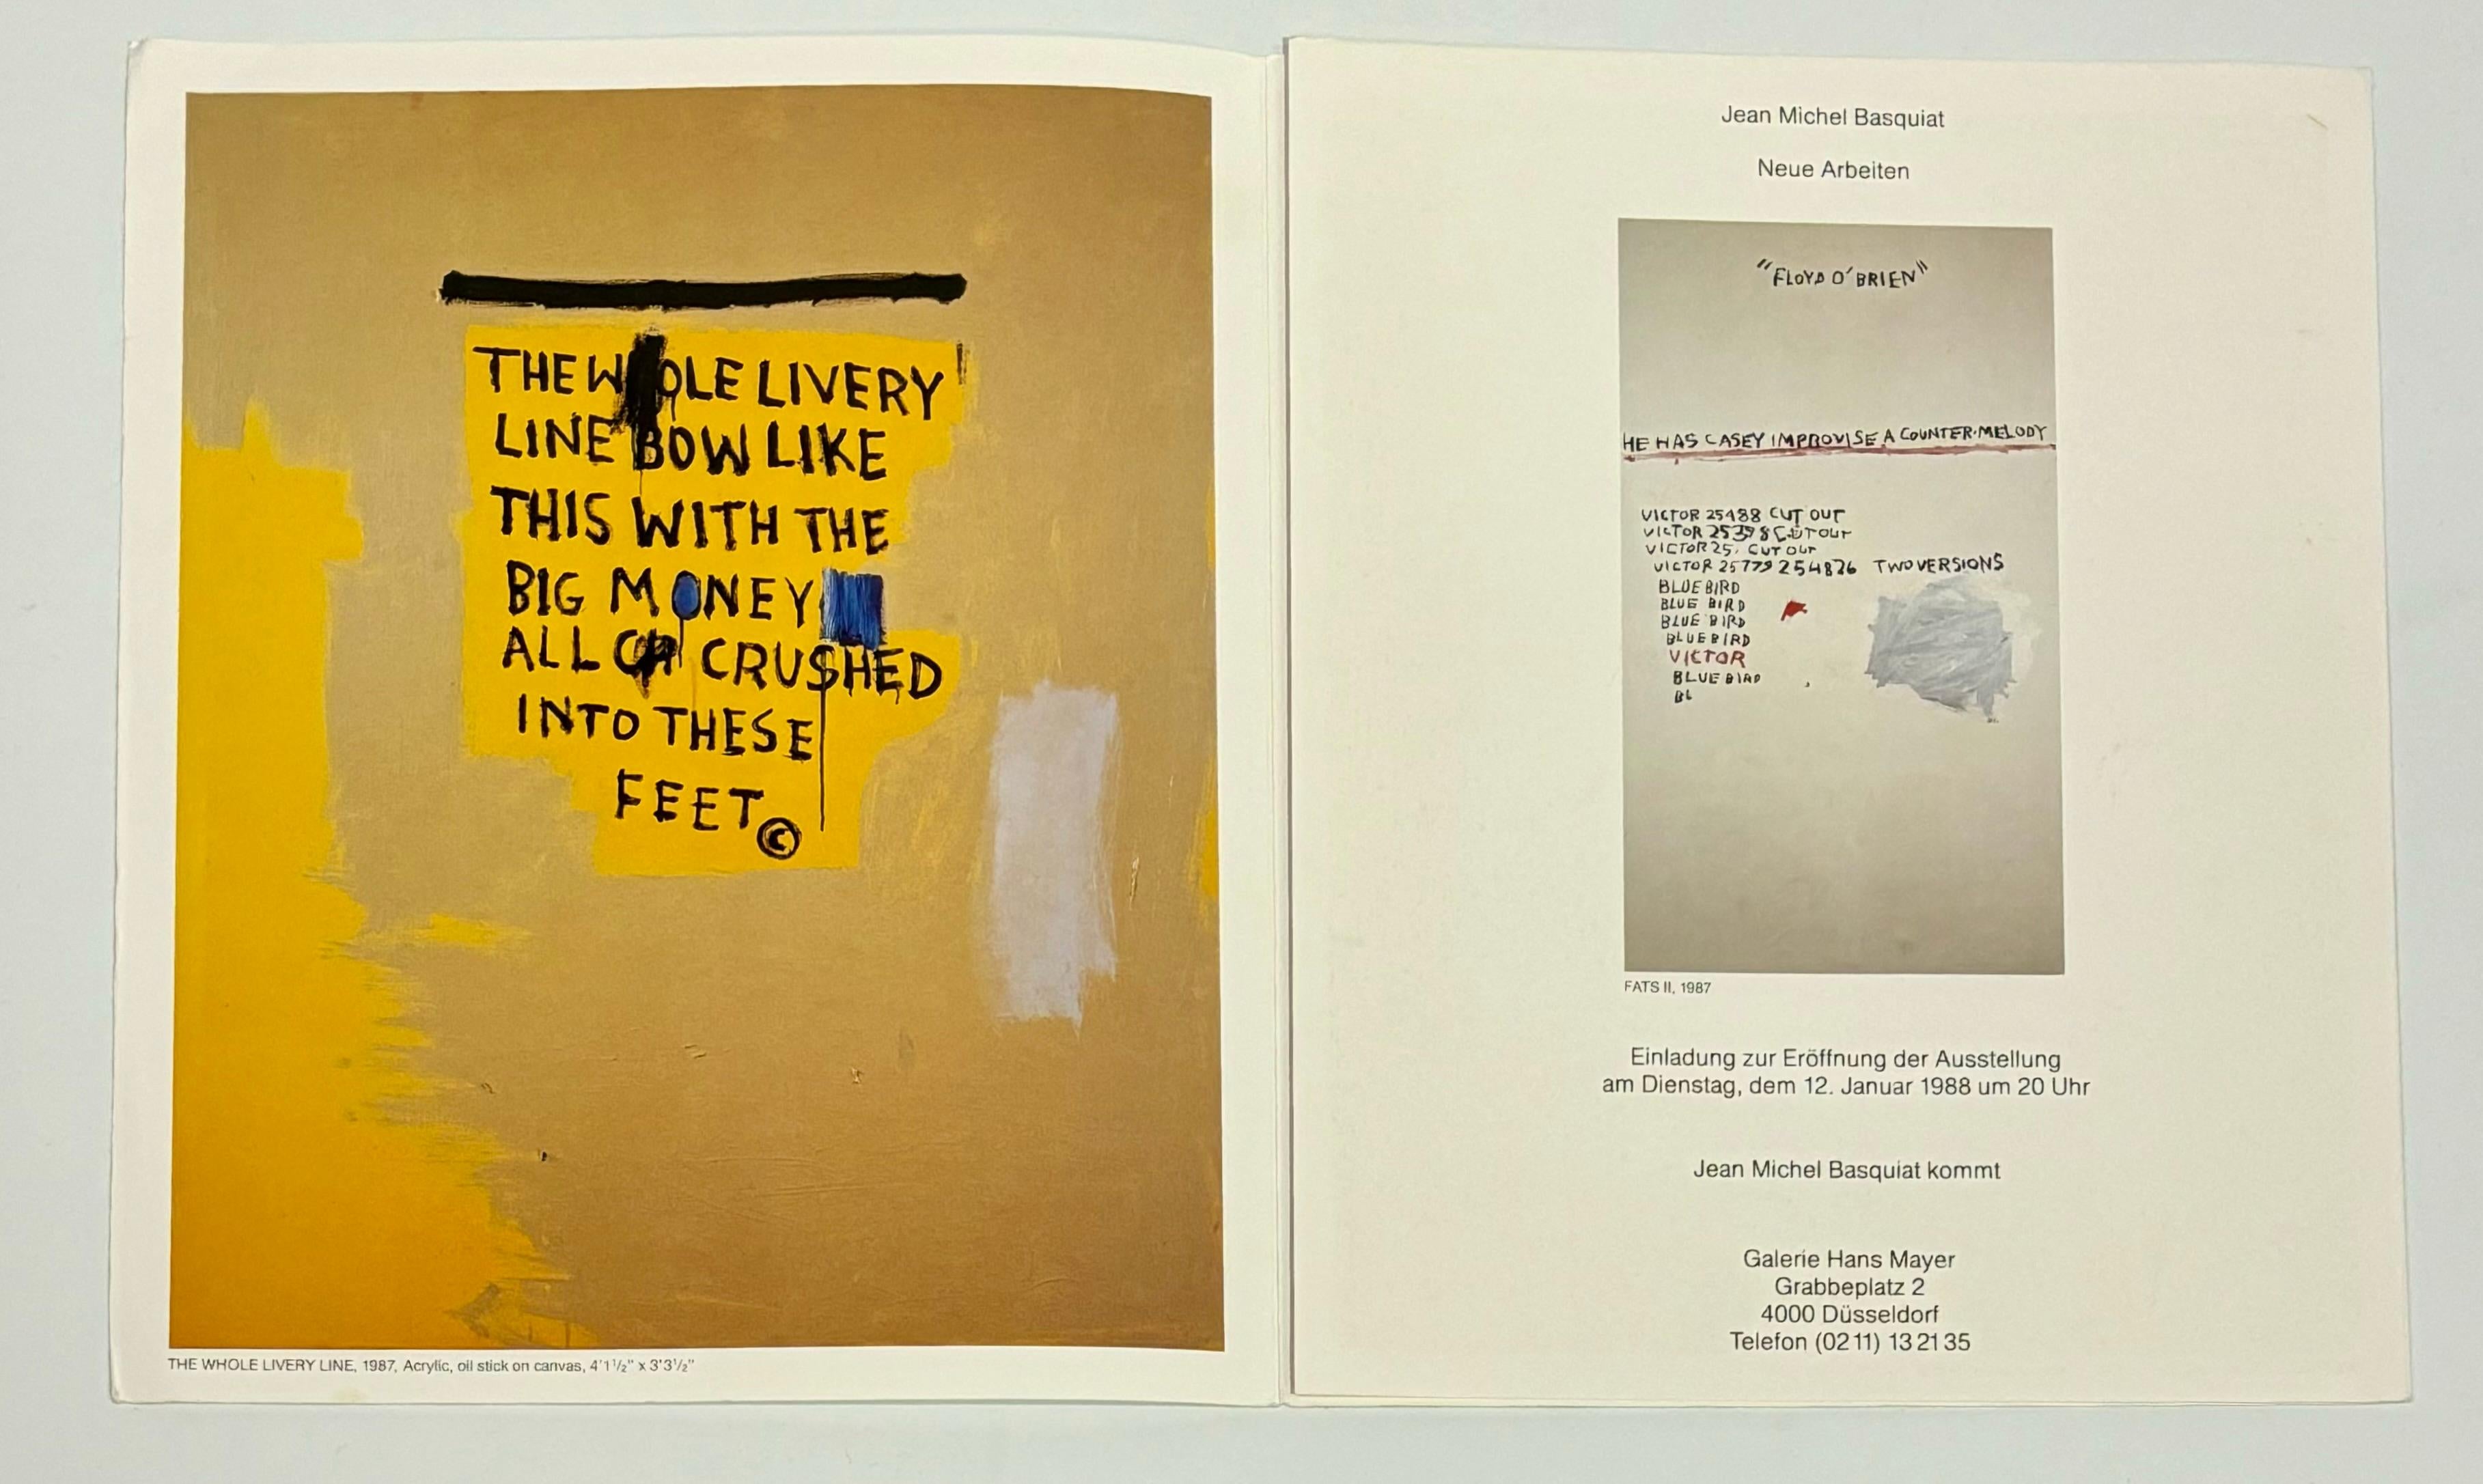 THE WHOLE LIVERY
LINE BOW LIKE
THIS WITH THE
BIG MONEY
ALL CRUSHED
INTO THESE
FEET ©
THE WHOLE LIVERY LINE, 1987, Acrylic, oil stick on canvas, 4'1½" x 3'3½"
Jean Michel Basquiat
Neue Arbeiten
"FLOYD O'BRIEN"
HE HAS CASEY IMPROVISE A COUNTER-MELODY
VICTOR 25488 CUT OUT
VICTOR CUT OUT
VICTOR 25, CUT OUT
VICTOR 25779 254826 TWO VERSIONS
BLUE BIRD
BLUE BIRD
BLUE BIRD
BLUE BIRD
VICTOR
BLUE BIRD
BL
FATS II, 1987
Einladung zur Eröffnung der Ausstellung
am Dienstag, dem 12. Januar 1988 um 20 Uhr
Jean Michel Basquiat kommt
Galerie Hans Mayer
Grabbeplatz 2
4000 Düsseldorf
Telefon (02 11) 13 21 35